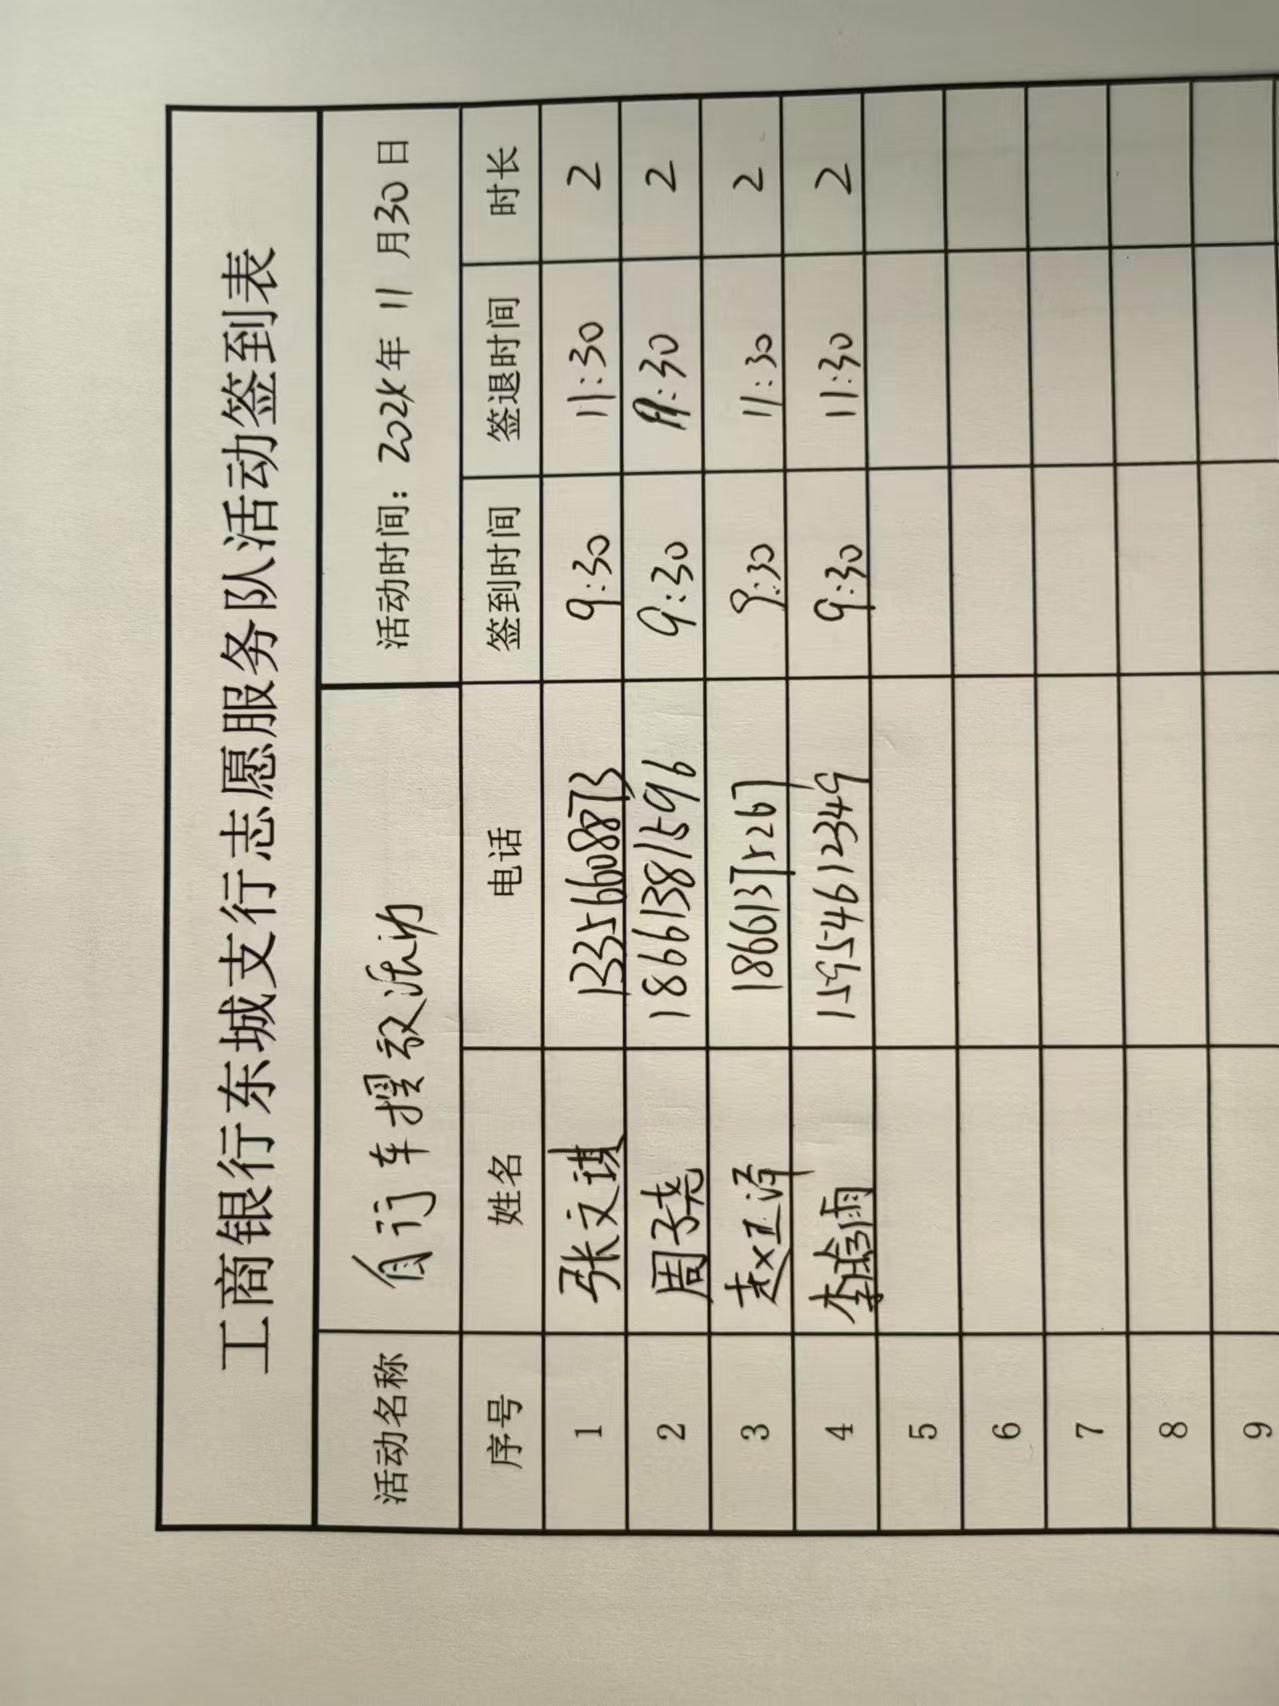 工商银行东城支行志愿服务队活动签到表
活动名称 自行车摆放活动 活动时间：2024年 11 月30日
序号 姓名 电话 签到时间 签退时间 时长
1 张文琪 13356608873 9:30 11:30 2
2 周子尧 18661381596 9:30 11:30 2
3 赵正泽 18661375267 9:30 11:30 2
4 李 15954612349 9:30 11:30 2
5
6
7
8
9